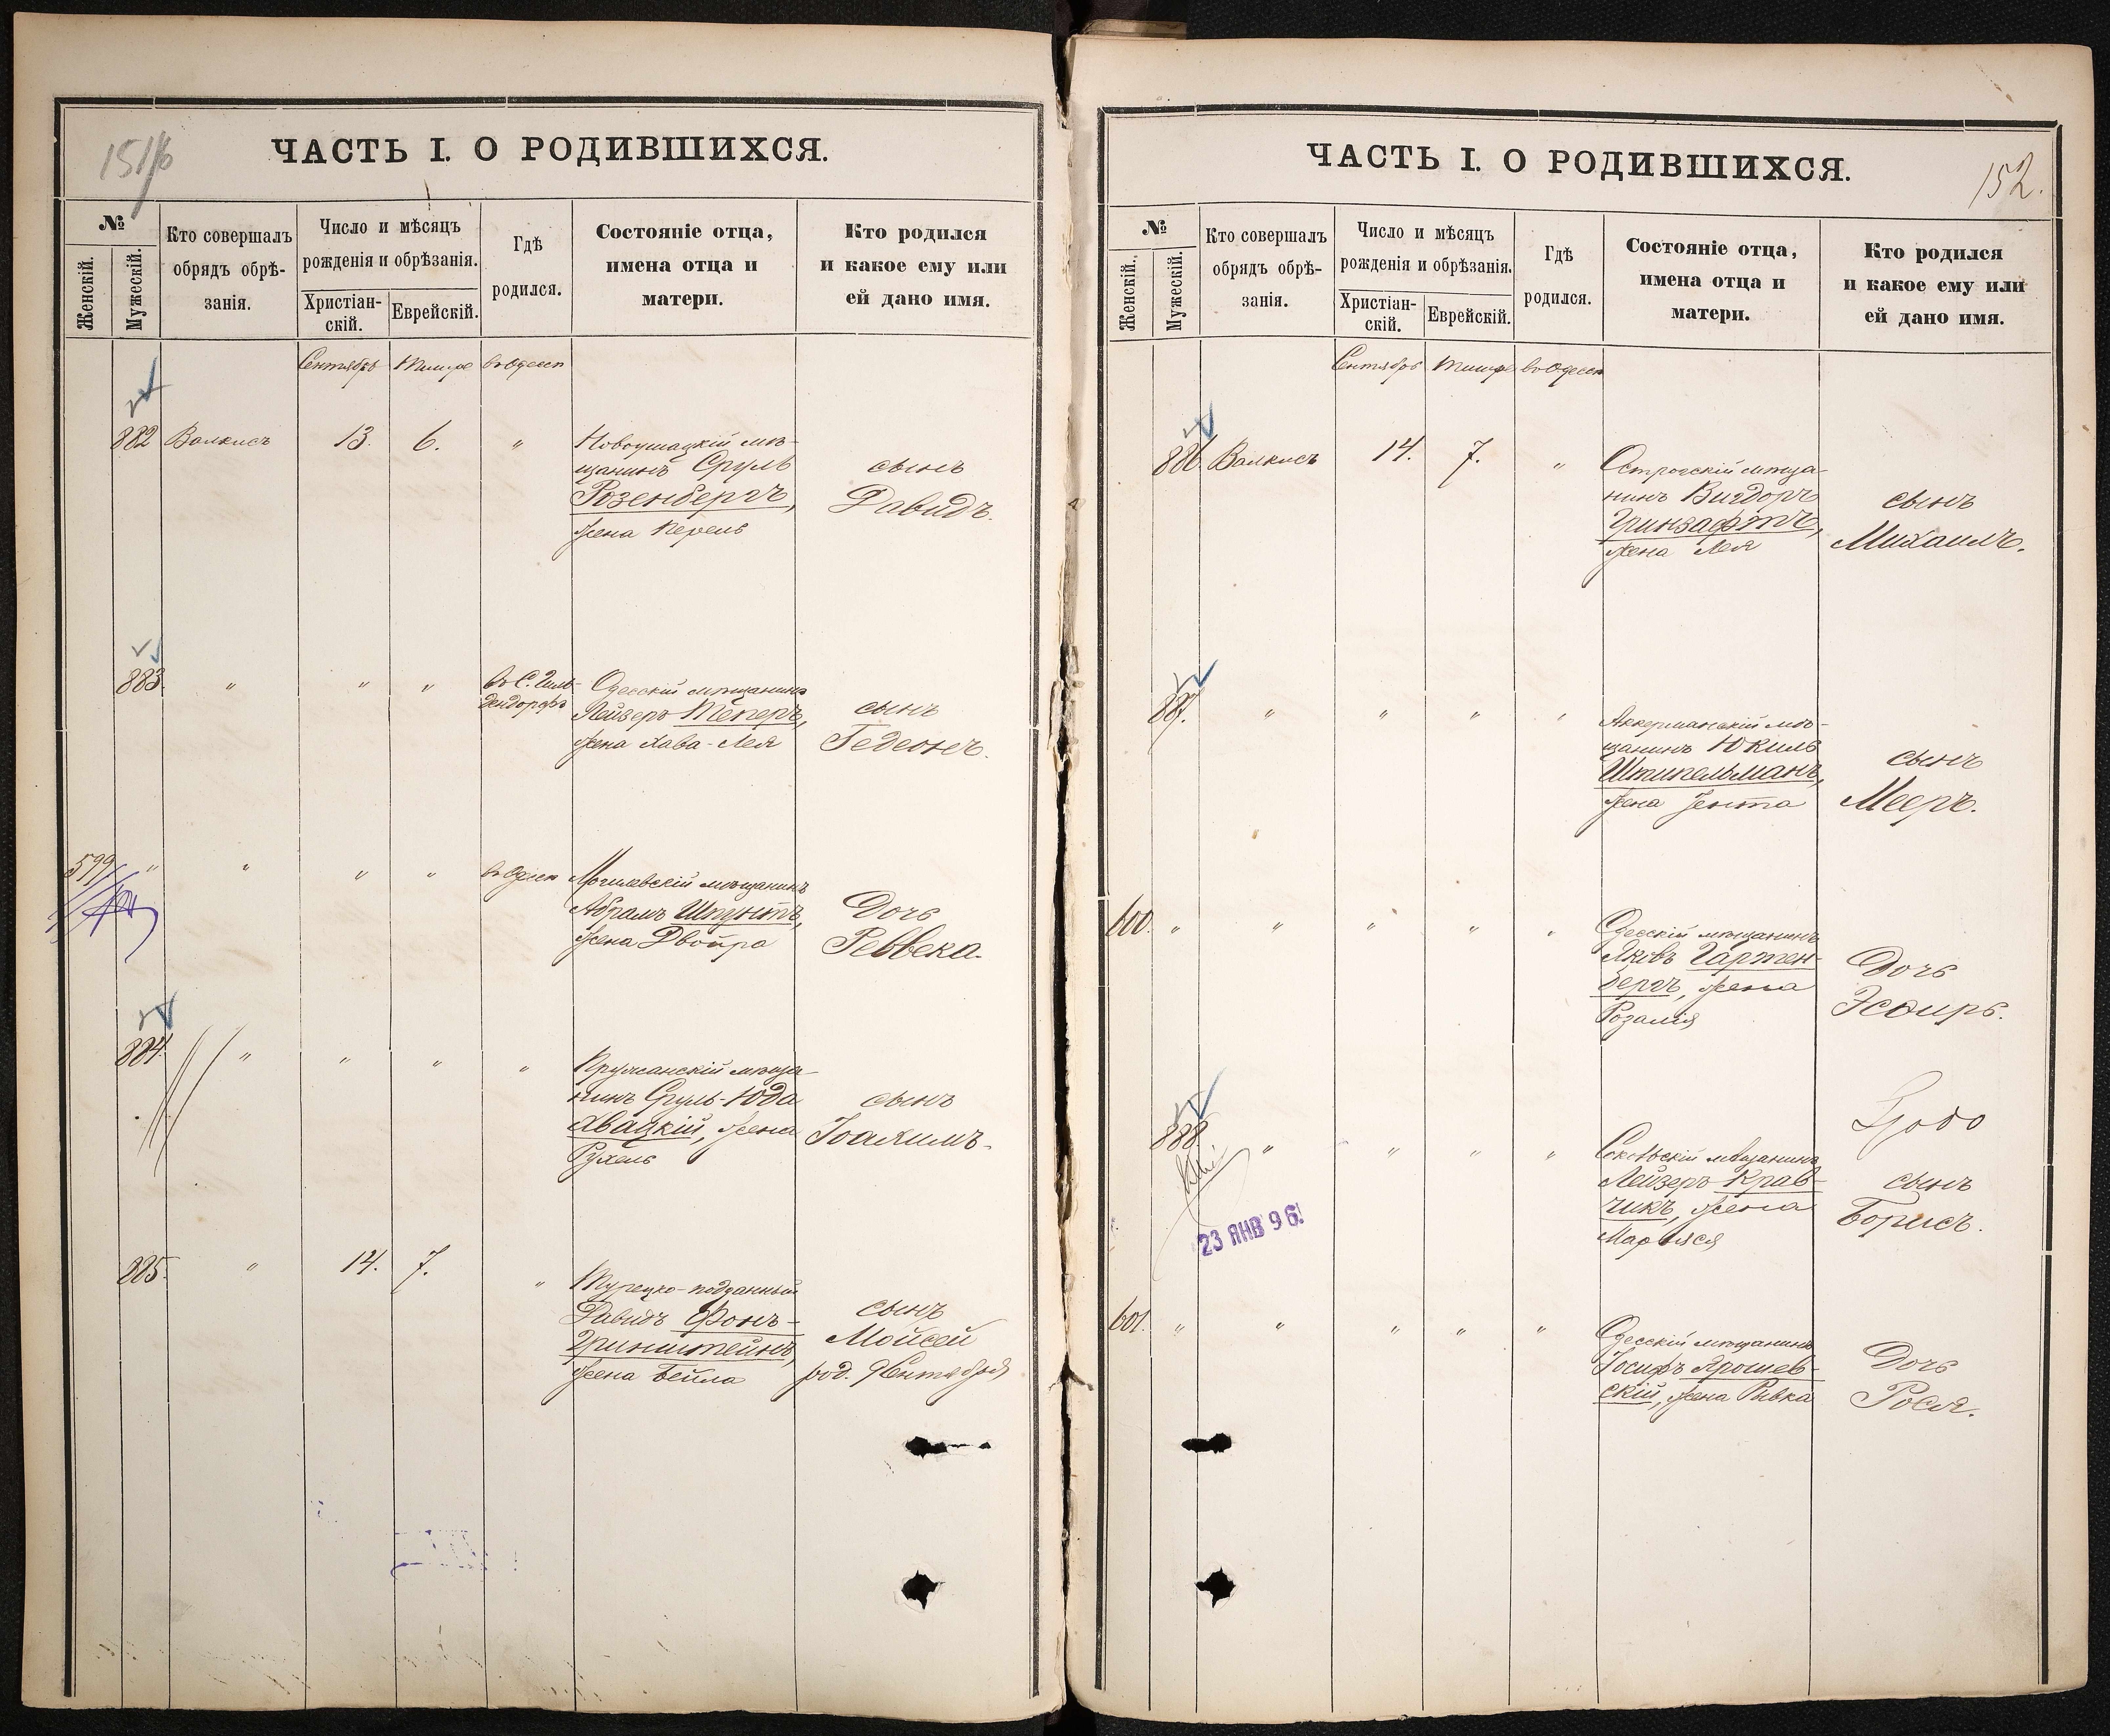 151/б
ЧАСТЬ I. О РОДИВШИХСЯ.
№
Женскій.
Мужескій.
Кто совершалъ
обрядъ обрѣ-
занія.
Число и мѣсяцъ
рожденія и обрѣзанія.
Христіан-
скій.
Еврейскій.
Гдѣ
родился.
Состояніе отца,
имена отца и
матери.
Кто родился
и какое ему или
ей дано имя.
Сентябрь Тишре въ Одессѣ
882 Валкисъ 13. 6. "
Новоушицкій мѣ-
щанинъ Сруль
Розенбергъ,
жена Перель
сынъ
Давидъ.
883. " " "
въ С. Гиль-
дендорфъ
Одесскій мѣщанинъ
Лейзеръ Теперъ,
жена Хава-Лея
сынъ
Гедеонъ.
599 " " " " въ Одессѣ
Могилевскій мѣщанинъ
Абрамъ Шпунтъ,
жена Двойра
Дочь
Реввека.
884. " " " "
Пружанскій мѣща-
нинъ Сруль-Юда
Хвацкій, жена
Рухель
сынъ
Іоахимъ.
885. " 14. 7. "
Турецко-подданный
Давидъ Фонъ-
Гринштейнъ,
жена Бейла
сынъ
Мойсей
род. 9 Сентября
152.
ЧАСТЬ I. О РОДИВШИХСЯ.
№
Женскій.
Мужескій.
Кто совершалъ
обрядъ обрѣ-
занія.
Число и мѣсяцъ
рожденія и обрѣзанія.
Христіан-
скій.
Еврейскій.
Гдѣ
родился.
Состояніе отца,
имена отца и
матери.
Кто родился
и какое ему или
ей дано имя.
Сентябрь Тишре въ Одессѣ
886. Валкисъ 14. 7. "
Острогскій мѣща-
нинъ Вигдоръ
Гринзафтъ,
жена Лея
сынъ
Михаилъ.
887. " " " "
Аккерманскій мѣ-
щанинъ Юкиль
Штипельманъ,
жена Зента
сынъ
Мееръ.
600. " " " " "
Одесскій мѣщанинъ
Яковъ Гартен-
бергъ, жена
Розалія
Дочь
Эсѳирь.
888. " " " "
мѣщанинъ
Лейзеръ Крав-
чикъ, жена
Марьяся
сынъ
Борисъ.
23 ЯНВ 96
601. " " " " "
Одесскій мѣщанинъ
Іосифъ Ярошев-
скій, жена Ривка
Дочь
Рося.